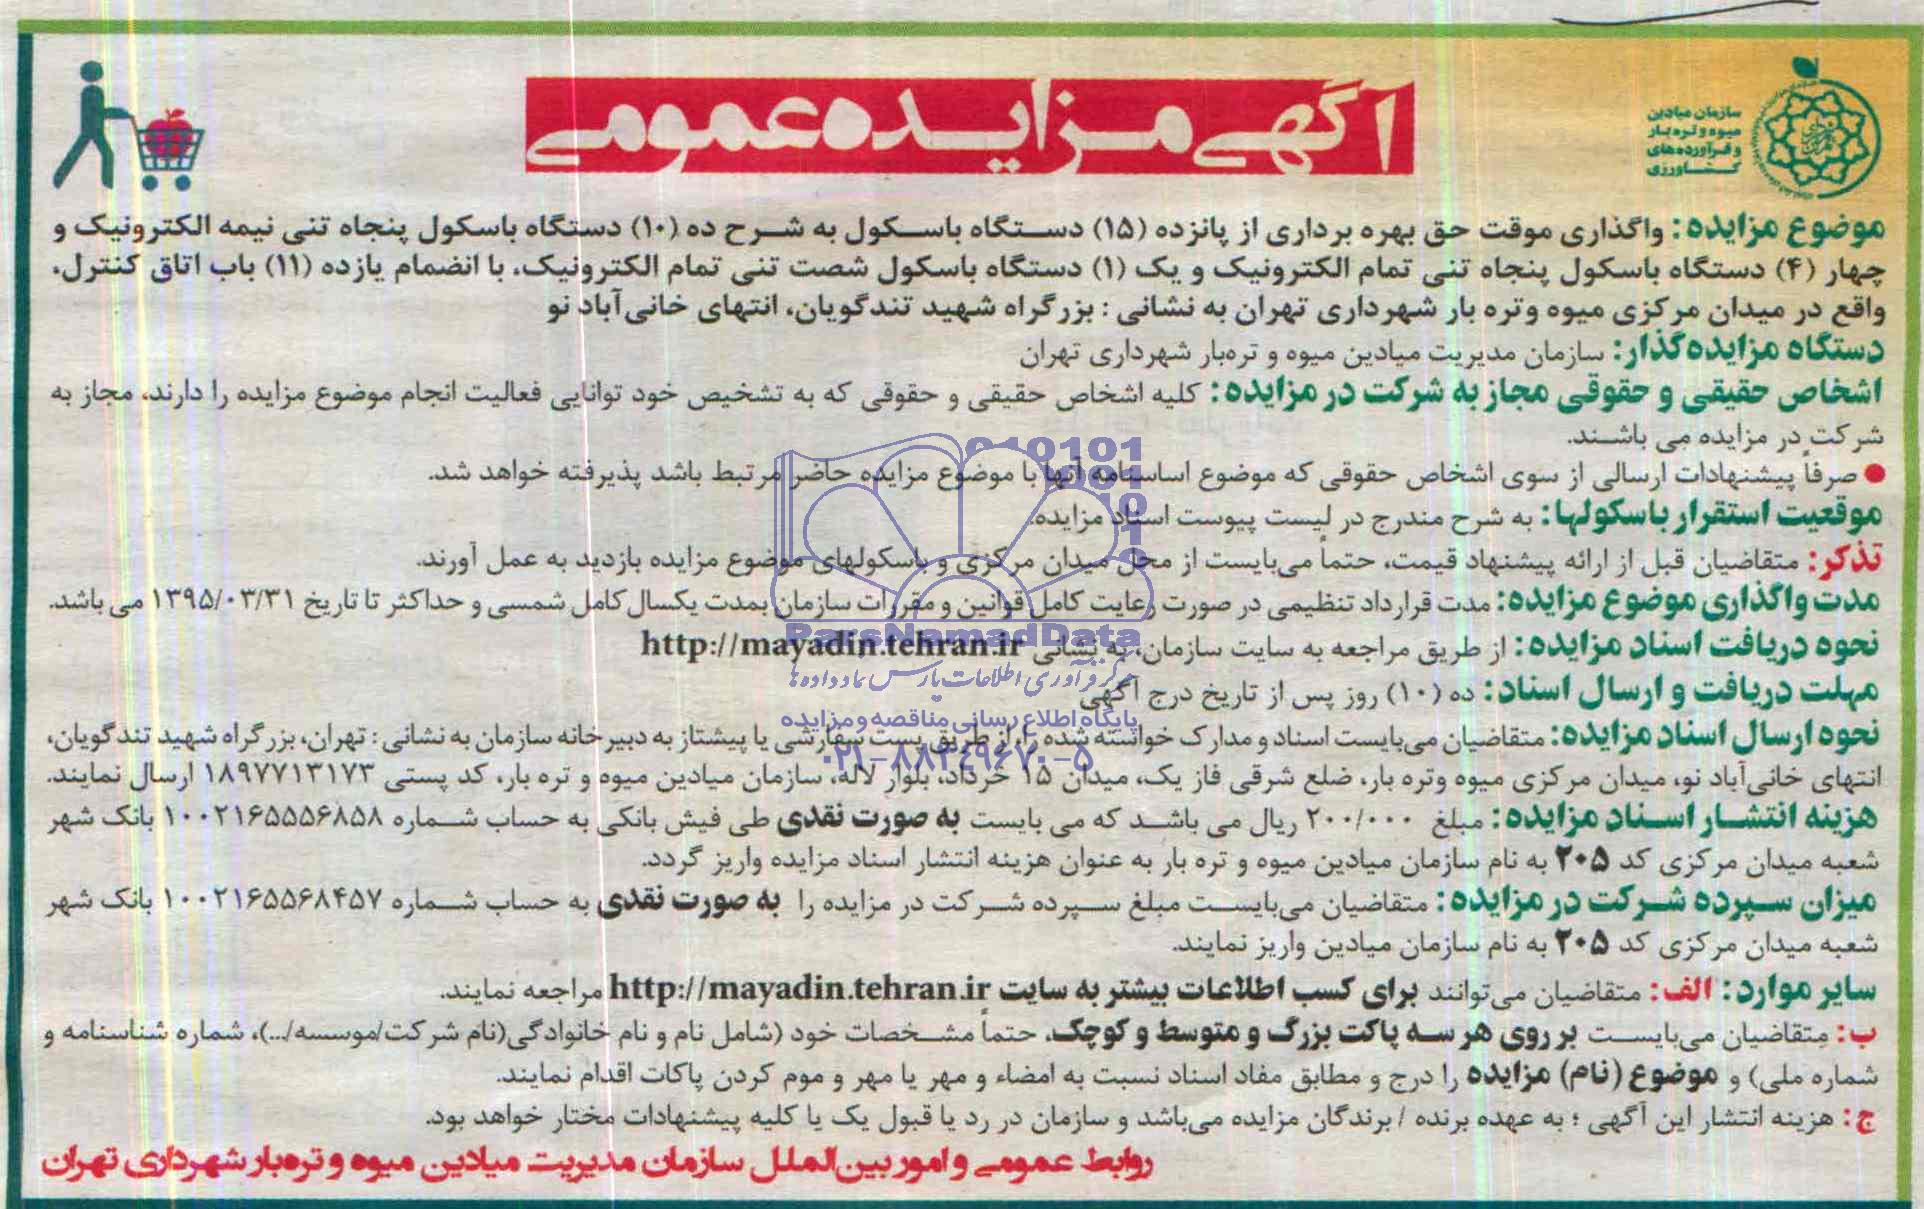 سازمان میادین
میوه و تره بار
و فرآورده‌های
کشاورزی
آگهی مزایده عمومی
موضوع مزایده: واگذاری موقت حق بهره برداری از پانزده (۱۵) دستگاه باسکول به شرح ده (۱۰) دستگاه باسکول پنجاه تنی نیمه الکترونیک و
چهار (۴) دستگاه باسکول پنجاه تنی تمام الکترونیک و یک (۱) دستگاه باسکول شصت تنی تمام الکترونیک، با انضمام یازده (۱۱) باب اتاق کنترل،
واقع در میدان مرکزی میوه وتره بار شهرداری تهران به نشانی : بزرگراه شهید تندگویان، انتهای خانی‌آباد نو
دستگاه مزایده‌گذار: سازمان مدیریت میادین میوه و تره‌بار شهرداری تهران
اشخاص حقیقی و حقوقی مجاز به شرکت در مزایده: کلیه اشخاص حقیقی و حقوقی که به تشخیص خود توانایی فعالیت انجام موضوع مزایده را دارند، مجاز به
شرکت در مزایده می باشند.
● صرفاً پیشنهادات ارسالی از سوی اشخاص حقوقی که موضوع اساسنامه آنها با موضوع مزایده حاضر مرتبط باشد پذیرفته خواهد شد.
موقعیت استقرار باسکولها: به شرح مندرج در لیست پیوست اسناد مزایده.
تذکر: متقاضیان قبل از ارائه پیشنهاد قیمت، حتماً می‌بایست از محل میدان مرکزی و باسکولهای موضوع مزایده بازدید به عمل آورند.
مدت واگذاری موضوع مزایده: مدت قرارداد تنظیمی در صورت رعایت کامل قوانین و مقررات سازمان بمدت یکسال کامل شمسی و حداکثر تا تاریخ ۱۳۹۵/۰۳/۳۱ می باشد.
ParsNamadData
نحوه دریافت اسناد مزایده: از طریق مراجعه به سایت سازمان، به نشانی http://mayadin.tehran.ir
مرکز فرآوری اطلاعات پارس نماد داده‌ها
مهلت دریافت و ارسال اسناد: ده (۱۰) روز پس از تاریخ درج آگهی
پایگاه اطلاع رسانی مناقصه و مزایده
نحوه ارسال اسناد مزایده: متقاضیان می‌بایست اسناد و مدارک خواسته شده را از طریق پست سفارشی یا پیشتاز به دبیرخانه سازمان به نشانی : تهران، بزرگراه شهید تندگویان،
۰۲۱-۸۸۳۴۹۶۷۰-۵
انتهای خانی‌آباد نو، میدان مرکزی میوه وتره بار، ضلع شرقی فاز یک، میدان ۱۵ خرداد، بلوار لاله، سازمان میادین میوه و تره بار، کد پستی ۱۸۹۷۷۱۳۱۷۳ ارسال نمایند.
هزینه انتشار اسناد مزایده: مبلغ ۲۰۰/۰۰۰ ریال می باشد که می بایست به صورت نقدی طی فیش بانکی به حساب شماره ۱۰۰۲۱۶۵۵۵۶۸۵۸ بانک شهر
شعبه میدان مرکزی کد ۲۰۵ به نام سازمان میادین میوه و تره بار به عنوان هزینه انتشار اسناد مزایده واریز گردد.
میزان سپرده شرکت در مزایده: متقاضیان می‌بایست مبلغ سپرده شرکت در مزایده را به صورت نقدی به حساب شماره ۱۰۰۲۱۶۵۵۶۸۴۵۷ بانک شهر
شعبه میدان مرکزی کد ۲۰۵ به نام سازمان میادین واریز نمایند.
سایر موارد: الف: متقاضیان می‌توانند برای کسب اطلاعات بیشتر به سایت http://mayadin.tehran.ir مراجعه نمایند.
ب: متقاضیان می‌بایست بر روی هر سه پاکت بزرگ و متوسط و کوچک، حتماً مشخصات خود (شامل نام و نام خانوادگی(نام شرکت/موسسه/...)، شماره شناسنامه و
شماره ملی) و موضوع (نام) مزایده را درج و مطابق مفاد اسناد نسبت به امضاء و مهر یا مهر و موم کردن پاکات اقدام نمایند.
ج: هزینه انتشار این آگهی ؛ به عهده برنده / برندگان مزایده می‌باشد و سازمان در رد یا قبول یک یا کلیه پیشنهادات مختار خواهد بود.
روابط عمومی و امور بین‌الملل سازمان مدیریت میادین میوه و تره‌بار شهرداری تهران